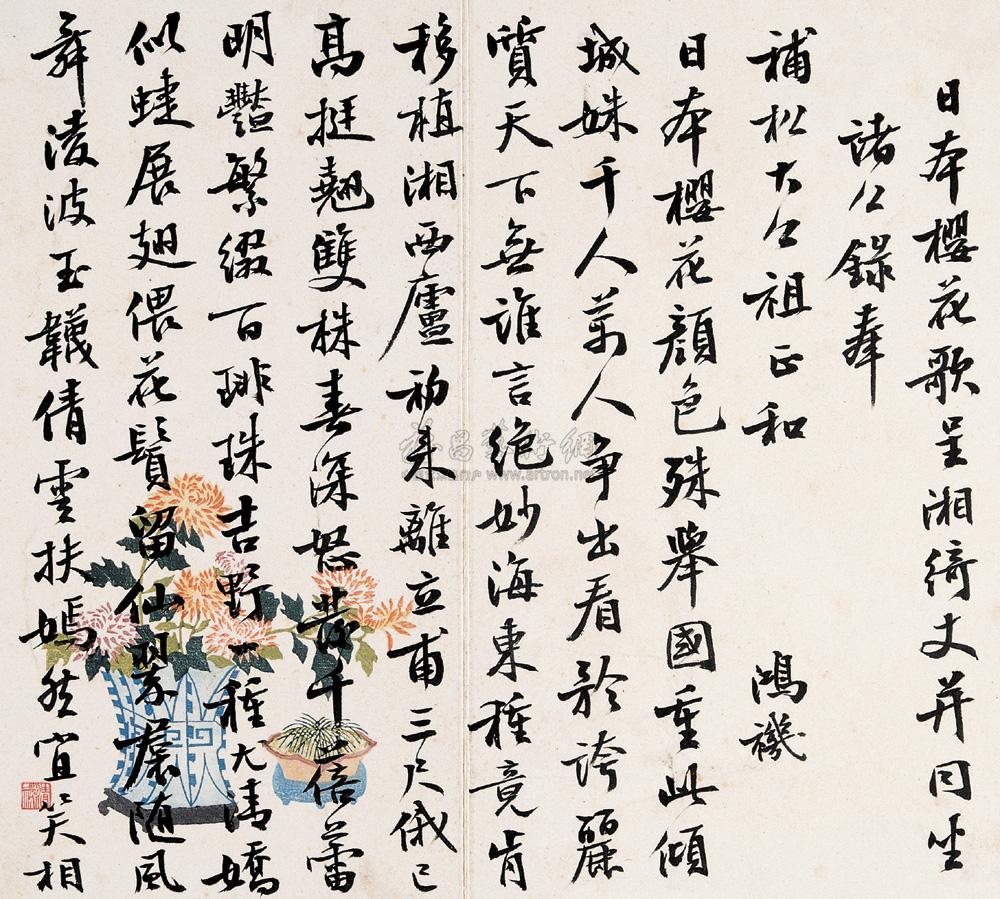 日本櫻花歌呈湘綺丈并同坐
諸公錄奉
補松大公祖正和 鴻機
日本櫻花顏色殊舉國重此傾
城姝千人萬人爭出看矜誇麗
質天下無誰言絕妙海東種竟肯
移植湘西廬初來離立甫三尺俄已
高挺翹雙株春深怒發千蓓蕾
明豔繁綴百琲珠吉野一種尤清嬌
似蛙展翅偎花鬚留仙翠裙隨風
舞淩波玉韤倩雲扶嫣然宜笑相
www.artron.net